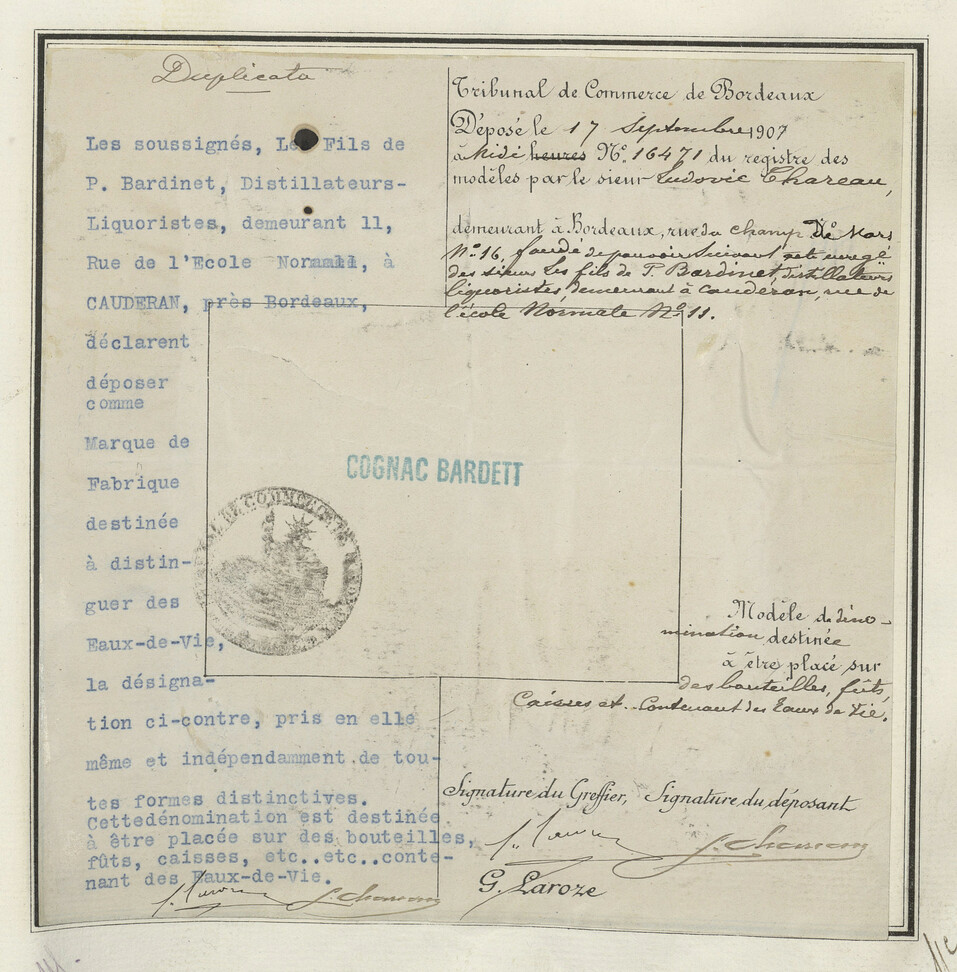 Duplicata
Les soussignés, Les Fils de
P. Bardinet, Distillateurs-
Liquoristes, demeurant 11,
Rue de l'Ecole Normale, à
CAUDERAN, près Bordeaux,
déclarent
déposer
comme
Marque de
Fabrique
destinée
à distin-
guer des
Eaux-de-Vie,
la désigna-
tion ci-contre, pris en elle
même et indépendamment de tou-
tes formes distinctives.
Cettedénomination est destinée
à être placée sur des bouteilles,
fûts, caisses, etc..etc..conte-
nant des Eaux-de-Vie.
Tribunal de Commerce de Bordeaux
Déposé le 17 Septembre 1907
à Midi heures No. 16471 du registre des
modèles par le sieur Ludovic Chareau,
demeurant à Bordeaux, rue du Champ De Mars
No. 16, fondé de pouvoir suivant acte enregé
des sieurs Les fils de P. Bardinet, distillateurs
liquoristes, demeurant à Caudéran, rue de
l'école Normale No. 11.
COGNAC BARDETT
DE COMMERCE DE
Modèle de déno-
mination destinée
à être placé sur
des bouteilles, fûts,
Caisses et. Contenant des Eaux de Vie.
Signature du Greffier, Signature du déposant
G. Laroze